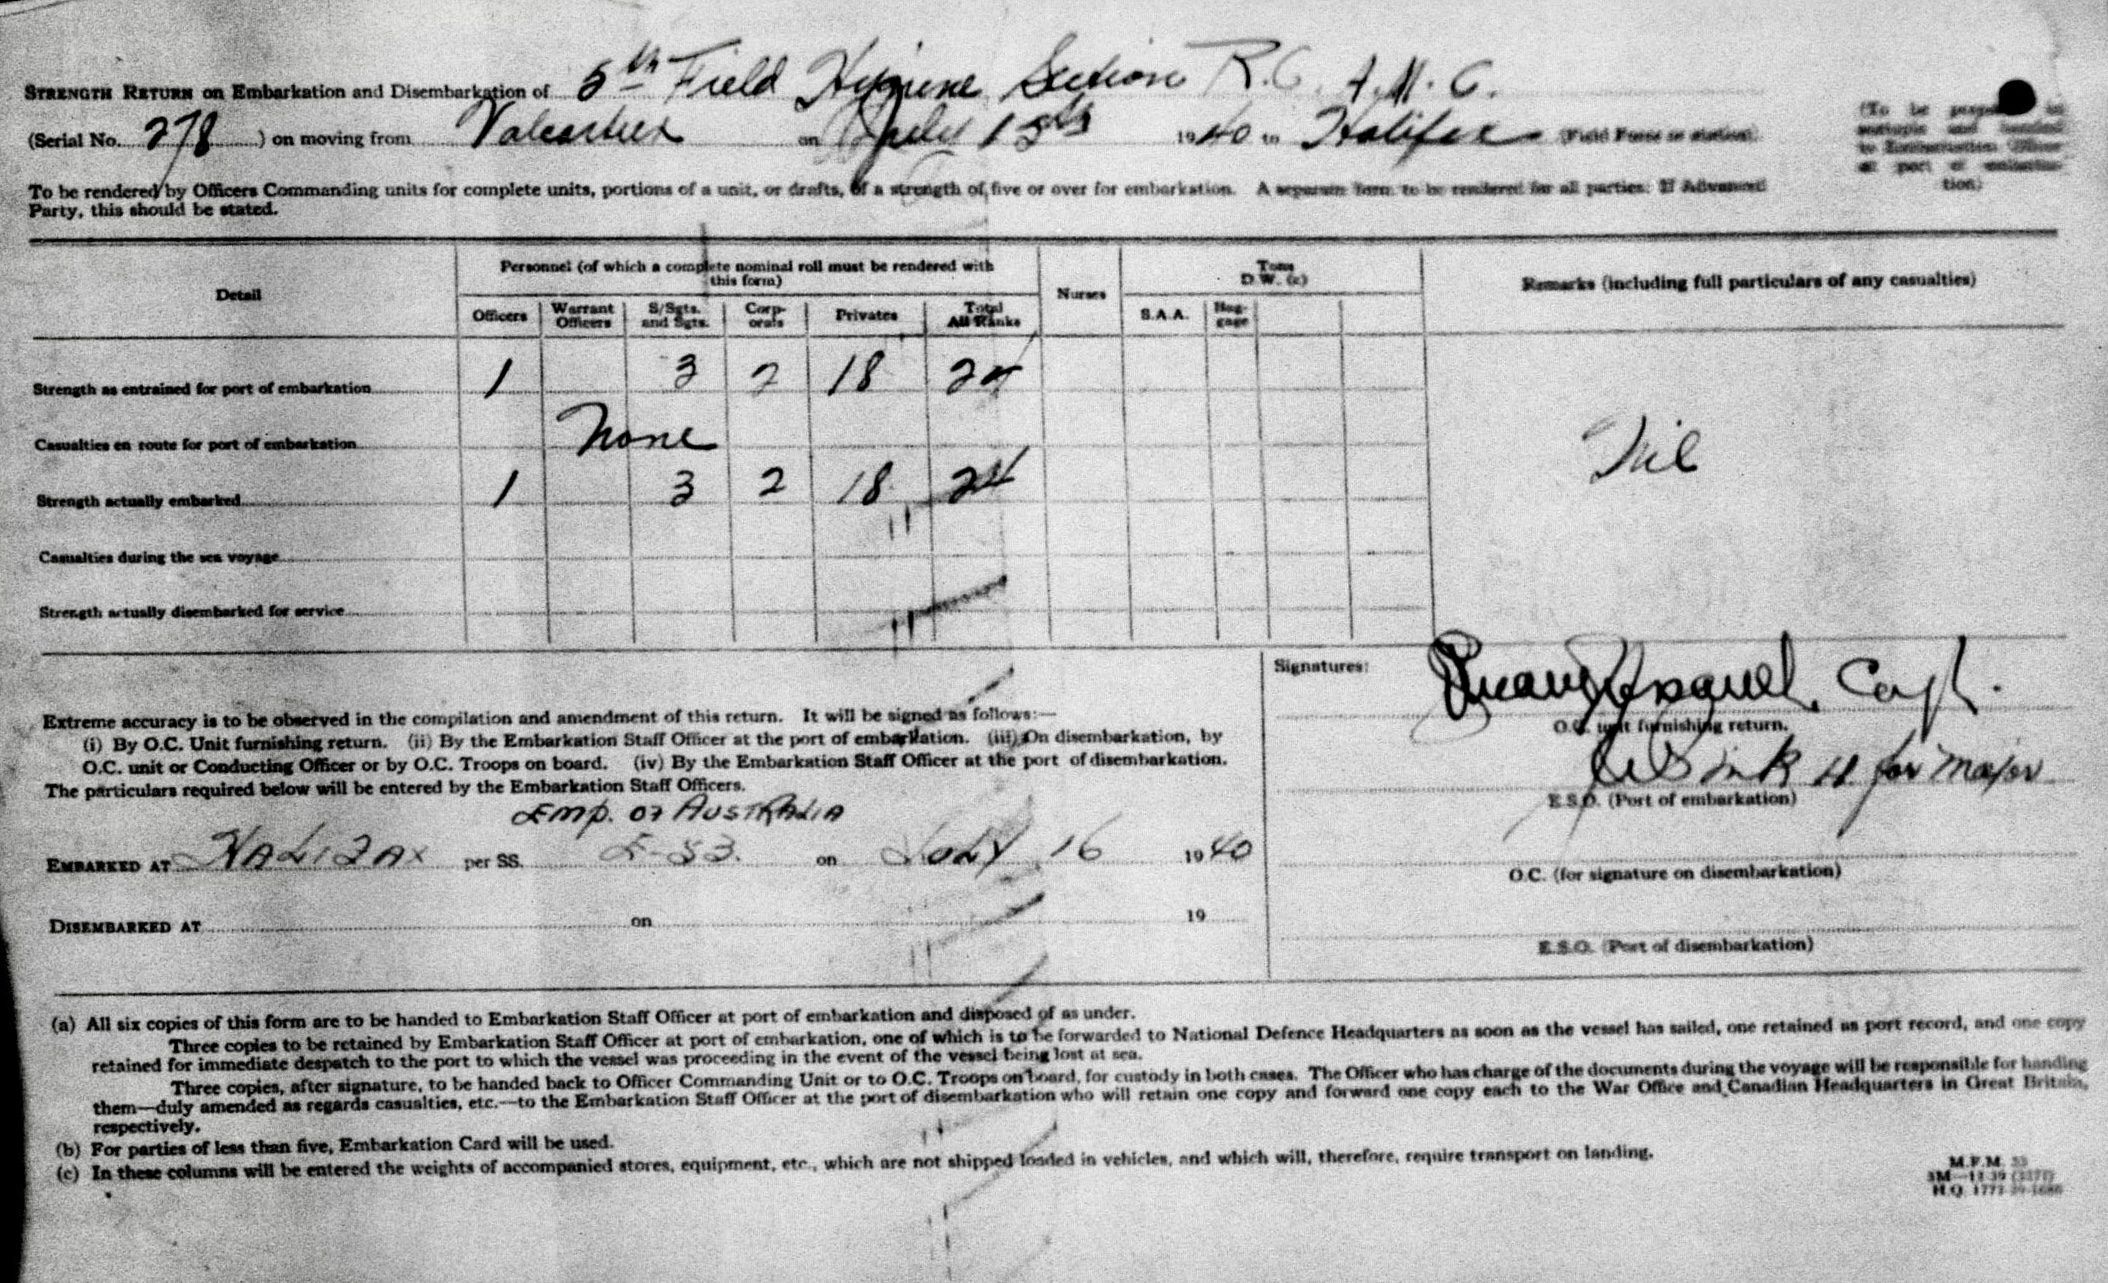 STRENGTH RETURN on Embarkation and Disembarkation of 5th Field Hygiene Section R.C.A.M.C.
(Serial No. 278 ) on moving from Valcartier on July 15th 1940 to Halifax (Field Force or station).
(To be prepared in
and handed
to Embarkation Officer
at port of embarkation)
To be rendered by Officers Commanding units for complete units, portions of a unit, or drafts, of a strength of five or over for embarkation. A separate form to be rendered for all parties. If Advanced
Party, this should be stated.
Detail
Personnel (of which a complete nominal roll must be rendered with
this form)
Nurses
Tons
D.W. (c)
Remarks (including full particulars of any casualties)
Officers Warrant Officers S/Sgts. and Sgts. Corp-orals Privates Total All Ranks S.A.A. Bag-gage
Strength as entrained for port of embarkation 1 3 2 18 24
Casualties en route for port of embarkation None
Nil
Strength actually embarked 1 3 2 18 24
Casualties during the sea voyage
Strength actually disembarked for service
Signatures:
Capt.
O.C. unit furnishing return.
Lt for Major
E.S.O. (Port of embarkation)
O.C. (for signature on disembarkation)
E.S.O. (Port of disembarkation)
Extreme accuracy is to be observed in the compilation and amendment of this return. It will be signed as follows:—
(i) By O.C. Unit furnishing return. (ii) By the Embarkation Staff Officer at the port of embarkation. (iii) On disembarkation, by
O.C. unit or Conducting Officer or by O.C. Troops on board. (iv) By the Embarkation Staff Officer at the port of disembarkation.
The particulars required below will be entered by the Embarkation Staff Officers.
EMP. OF AUSTRALIA
EMBARKED AT HALIFAX per SS. E-53. on JULY 16 1940
DISEMBARKED AT on 19
(a) All six copies of this form are to be handed to Embarkation Staff Officer at port of embarkation and disposed of as under.
Three copies to be retained by Embarkation Staff Officer at port of embarkation, one of which is to be forwarded to National Defence Headquarters as soon as the vessel has sailed, one retained as port record, and one copy
retained for immediate despatch to the port to which the vessel was proceeding in the event of the vessel being lost at sea.
Three copies, after signature, to be handed back to Officer Commanding Unit or to O.C. Troops on board, for custody in both cases. The Officer who has charge of the documents during the voyage will be responsible for handing
them—duly amended as regards casualties, etc.—to the Embarkation Staff Officer at the port of disembarkation who will retain one copy and forward one copy each to the War Office and Canadian Headquarters in Great Britain,
respectively.
(b) For parties of less than five, Embarkation Card will be used.
(c) In these columns will be entered the weights of accompanied stores, equipment, etc., which are not shipped loaded in vehicles, and which will, therefore, require transport on landing.
M.F.M. 33
H.Q. 1772-39-1680